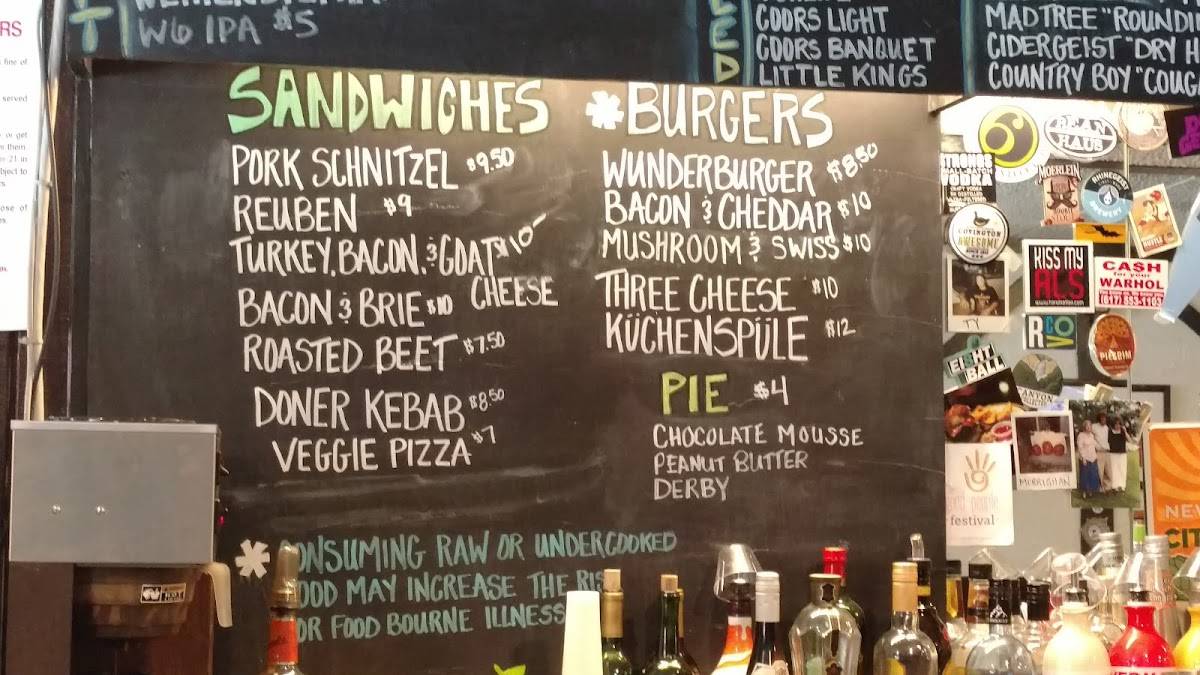 W6 IPA $5
COORS LIGHT
COORS BANQUET
LITTLE KINGS
MADTREE "ROUNDI
CIDERGEIST "DRY H
COUNTRY BOY "COUG
SANDWICHES
PORK SCHNITZEL $9.50
REUBEN $9
TURKEY, BACON, & GOAT $10
CHEESE
BACON & BRIE $10
ROASTED BEET $7.50
DONER KEBAB $8.50
VEGGIE PIZZA $7
*BURGERS
WUNDERBURGER $8.50
BACON & CHEDDAR $10
MUSHROOM & SWISS $10
THREE CHEESE $10
KÜCHENSPÜLE $12
PIE $4
CHOCOLATE MOUSSE
PEANUT BUTTER
DERBY
* CONSUMING RAW OR UNDERCOOKED
FOOD MAY INCREASE THE RIS
FOR FOOD BOURNE ILLNESS
RS
fine of
served
or get
21 in
BEAN
HAUS
VODKA
MOERLEIN
RHINEGEIST
BREWERY
COVINGTON
AWESOME
KISS MY
ALS
CA$H
for your
WARHOL
TY
RCOV
PILGRIM
EIGHT
BALL
festival
NEW
CIT